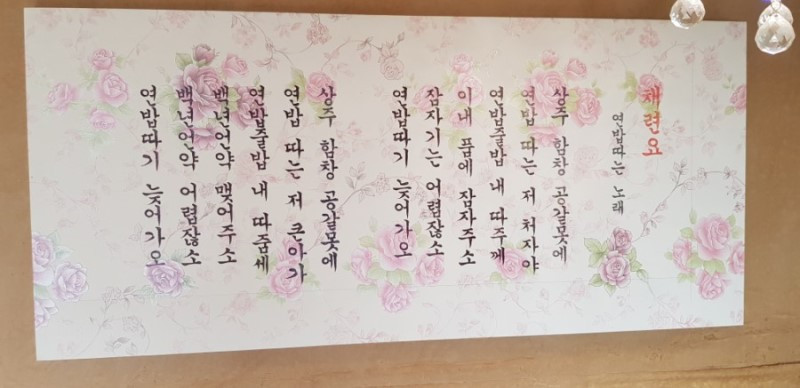 채련요
연밥따는 노래
상주 함창 공갈못에
연밥 따는 저 처자야
연밥줄밥 내 따주께
이내 품에 잠자주소
잠자기는 어렵잖소
연밥따기 늦어가오
상주 함창 공갈못에
연밥 따는 저 큰아가
연밥줄밥 내 따줌세
백년언약 맺어주소
백년언약 어렵잖소
연밥따기 늦어가오